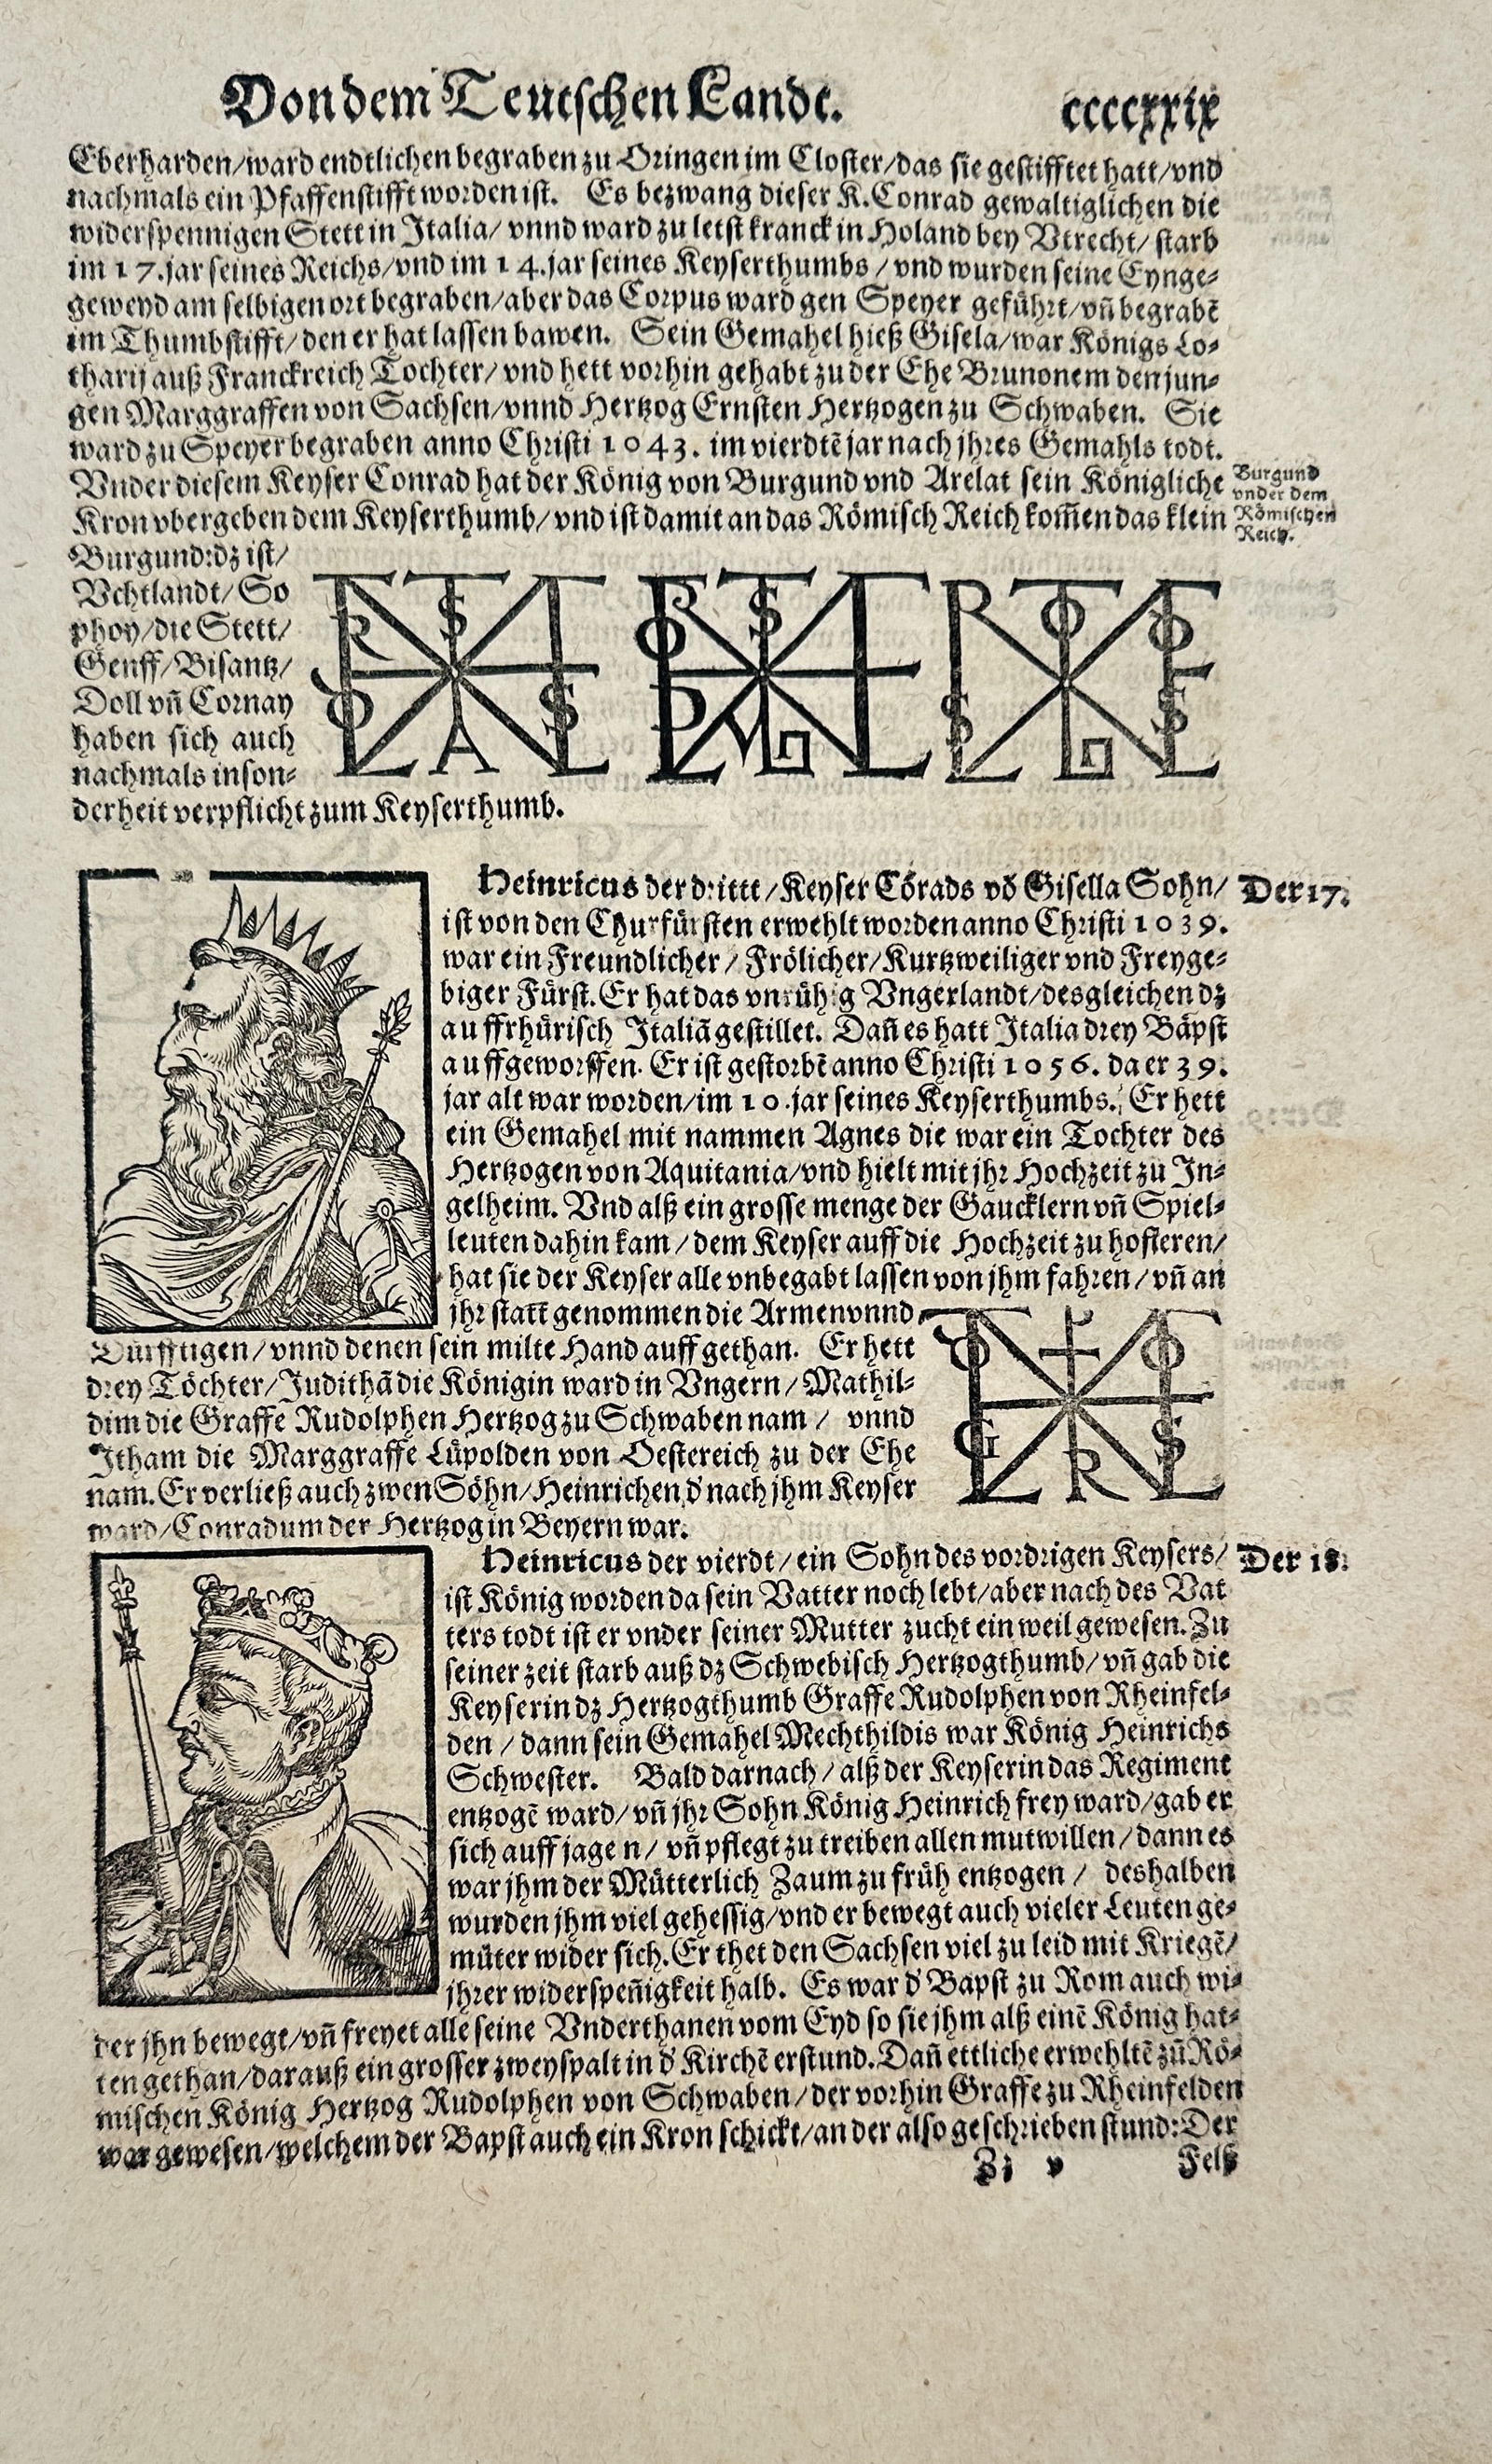 Von dem Teutschen Lande. ccccxxix
Eberharden/ward endtlichen begraben zu Oringen im Closter/das sie gestifftet hatt/vnd
nachmals ein Pfaffenstifft worden ist. Es bezwang dieser K.Conrad gewaltiglichen die
widerspennigen Stett in Italia/ vnnd ward zu letst kranck in Holand bey Vtrecht/ starb
im 17.jar seines Reichs/vnd im 14.jar seines Keyserthumbs/vnd wurden seine Eynge-
geweyd am selbigen ort begraben/aber das Corpus ward gen Speyer geführt/vñ begrabẽ
im Thumbstifft/den er hat lassen bawen. Sein Gemahel hieß Gisela/war Königs Lo-
tharij auß Franckreich Tochter/ vnd hett vorhin gehabt zu der Ehe Brunonem den jun-
gen Marggraffen von Sachsen/vnnd Hertzog Ernsten Hertzogen zu Schwaben. Sie
ward zu Speyer begraben anno Christi 1043. im vierdtẽ jar nach jhres Gemahls todt.
Vnder diesem Keyser Conrad hat der König von Burgund vnd Arelat sein Königliche
Kron vbergeben dem Keyserthumb/ vnd ist damit an das Römisch Reich kom̃en das klein
Burgund
vnder dem
Römischen
Reich.
Burgund:dz ist/
Vchtlandt/ So
phoy/die Stett/
Genff/Bisantz/
Doll vñ Cornay
haben sich auch
nachmals inson-
derheit verpflicht zum Keyserthumb.
Heinricus der dritt/Keyser Cõrads võ Gisella Sohn/ Der 17.
ist von den Churfürsten erwehlt worden anno Christi 1039.
war ein Freundlicher/ Frölicher/Kurtzweiliger vnd Freyge-
biger Fürst. Er hat das vnrühig Vngerlandt/desgleichen dz
auffrhürisch Italiã gestillet. Dañ es hatt Italia drey Bäpst
auffgeworffen. Er ist gestorbẽ anno Christi 1056. da er 39.
jar alt war worden/im 10.jar seines Keyserthumbs. Er hett
ein Gemahel mit nammen Agnes die war ein Tochter des
Hertzogen von Aquitania/vnd hielt mit jhr Hochzeit zu In-
gelheim. Vnd alß ein grosse menge der Gaucklern vñ Spiel-
leuten dahin kam/ dem Keyser auff die Hochzeit zu hofieren/
hat sie der Keyser alle vnbegabt lassen von jhm fahren/ vñ an
jhr statt genommen die Armen vnnd
Dürfftigen/ vnnd denen sein milte Hand auffgethan. Er hett
drey Töchter/Judithã die Königin ward in Vngern/ Mathil-
dim die Graffe Rudolphen Hertzog zu Schwaben nam/ vnnd
Itham die Marggraffe Lüpolden von Oestereich zu der Ehe
nam. Er verließ auch zwen Söhn/Heinrichen d' nach jhm Keyser
ward/Conradum der Hertzog in Beyern war.
Heinricus der vierdt/ ein Sohn des vordrigen Keysers/ Der 18.
ist König worden da sein Vatter noch lebt/aber nach des Vat
ters todt ist er vnder seiner Mutter zucht ein weil gewesen. Zu
seiner zeit starb auß dz Schwebisch Hertzogthumb/ vñ gab die
Keyserin dz Hertzogthumb Graffe Rudolphen von Rheinfel-
den/ dann sein Gemahel Mechthildis war König Heinrichs
Schwester. Bald darnach/ alß der Keyserin das Regiment
entzogẽ ward/ vñ jhr Sohn König Heinrich frey ward/gab er
sich auff jagen/ vñ pflegt zu treiben allen mutwillen/ dann es
war jhm der Mütterlich Zaum zu früh entzogen/ deshalben
wurden jhm viel gehessig/vnd er bewegt auch vieler Leuten ge-
müter wider sich. Er thet den Sachsen viel zu leid mit Kriegẽ/
jhrer widerspeñigkeit halb. Es war d' Bapst zu Rom auch wi-
der jhn bewegt/vñ freyet alle seine Vnderthanen vom Eyd so sie jhm alß einẽ König hat-
ten gethan/darauß ein grosser zweyspalt in d' Kirchẽ erstund. Dañ ettliche erwehltẽ zũ Rö-
mischen König Hertzog Rudolphen von Schwaben/der vorhin Graffe zu Rheinfelden
war gewesen/welchem der Bapst auch ein Kron schickt/an der also geschrieben stund: Der
Zz v Felß